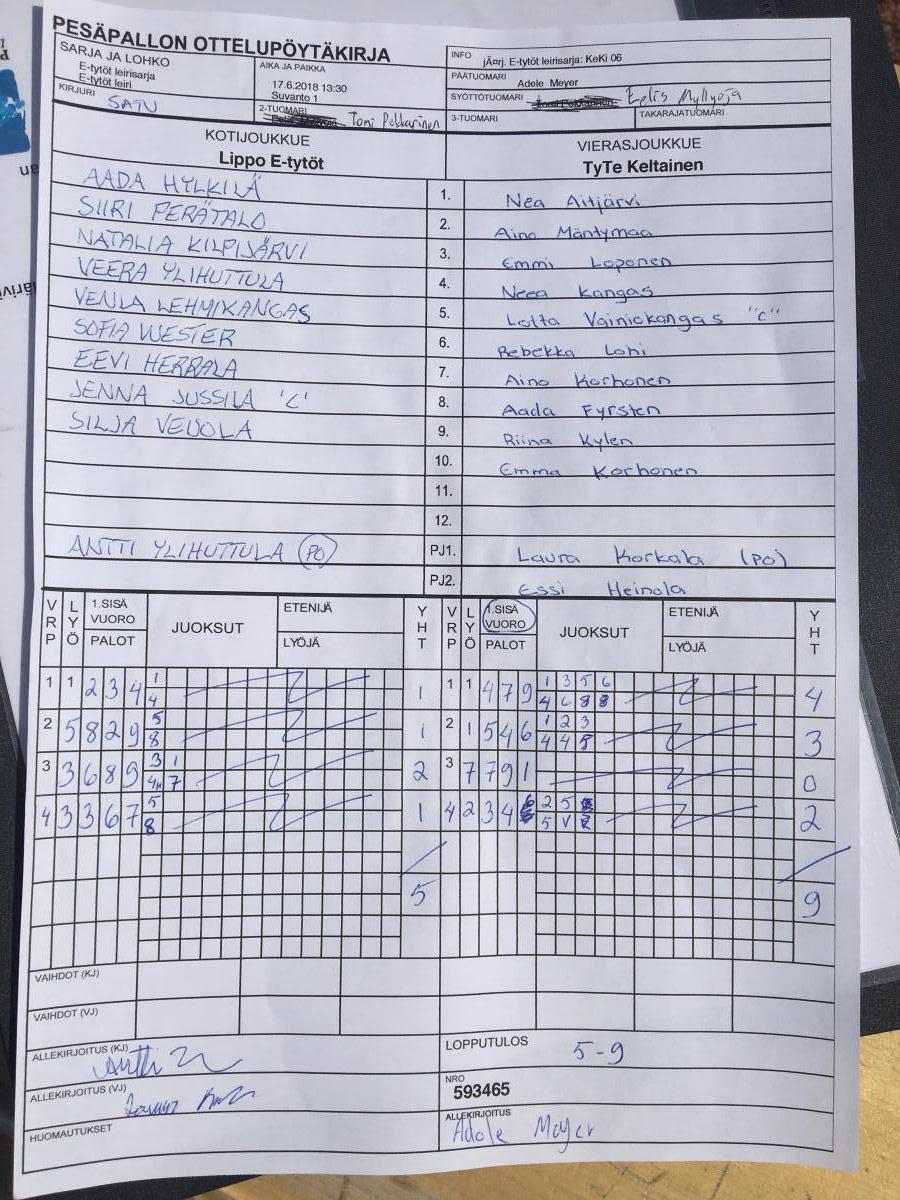 PESÄPALLON OTTELUPÖYTÄKIRJA
SARJA JA LOHKO
E-tytöt leirisarja
E-tytöt leiri
KIRJURI SATU
AIKA JA PAIKKA
17.6.2018 13:30
Suvanto 1
2-TUOMARI Tomi Pekkarinen
INFO jÄ¤rj. E-tytöt leirisarja: KeKi 06
PÄÄTUOMARI Adele Meyer
SYÖTTÖTUOMARI Eelis Myllyoja
3-TUOMARI
TAKARAJATUOMARI
KOTIJOUKKUE
Lippo E-tytöt
VIERASJOUKKUE
TyTe Keltainen
AADA HYLKILÄ 1. Nea Aitjärvi
SIIRI PERÄTALO 2. Aino Mäntymaa
NATALIA KILPIJÄRVI 3. Emmi Loponen
VEERA YLIHUTTULA 4. Neea Kangas
VENLA LEHMIKANGAS 5. Lotta Vainiokangas "C"
SOFIA WESTER 6. Rebekka Lohi
EEVI HERRALA 7. Aino Korhonen
JENNA JUSSILA 'C' 8. Aada Fyrsten
SILJA VEIJOLA 9. Riina Kylen
10. Emma Korhonen
11.
12.
ANTTI YLIHUTTULA (PO) PJ1. Laura Korkala (PO)
PJ2. Essi Heinola
VRP LYÖ 1.SISÄ VUORO PALOT JUOKSUT ETENIJÄ LYÖJÄ YHT VRP LYÖ 1.SISÄ VUORO PALOT JUOKSUT ETENIJÄ LYÖJÄ YHT
1 1 2 3 4 1 1 1 1 4 7 9 1 3 5 6 4
4 4 6 8 8
2 5 8 2 9 5 1 2 1 5 4 6 1 2 3 3
8 4 4 8
3 3 6 8 9 3 1 2 3 7 7 9 1 0
4H 7
4 3 3 6 7 5 1 4 2 3 4 2 5 2
8 5 V
5 9
VAIHDOT (KJ)
VAIHDOT (VJ)
ALLEKIRJOITUS (KJ) Antti
ALLEKIRJOITUS (VJ)
HUOMAUTUKSET
LOPPUTULOS 5-9
NRO
593465
ALLEKIRJOITUS
Adele Meyer